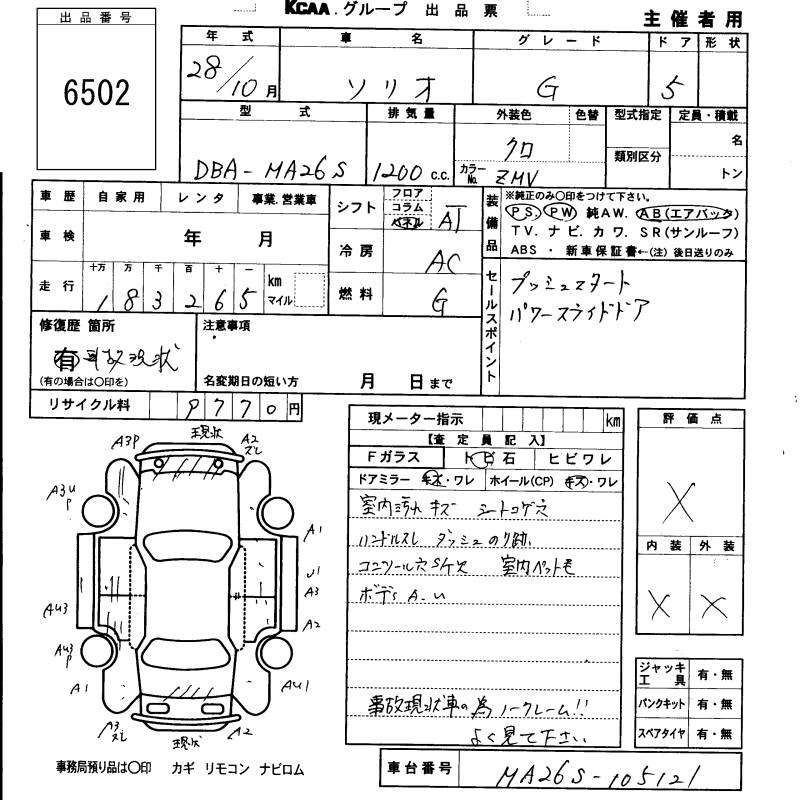 KCAA.グループ 出品票
主催者用
出品番号
6502
年式 車名 グレード ドア 形状
28/10月 ソリオ G 5
型式 排気量 外装色 色替 型式指定 定員・積載
DBA-MA26S 1200 c.c. クロ 類別区分 名
カラーNo. ZMV トン
車歴 自家用 レンタ 事業.営業車
車検 年 月
走行 十万 万 千 百 十 一
1 8 3 2 6 5 km マイル
シフト フロア コラム パネル AT
冷房 AC
燃料 G
装備品 ※純正のみ○印をつけて下さい。
PS. PW 純AW. AB(エアバック)
TV. ナビ. カワ. SR(サンルーフ)
ABS ・ 新車保証書←(注) 後日送りのみ
セールスポイント
プッシュスタート
パワースライドドア
修復歴 箇所 注意事項
有 事故現状
(有の場合は○印を)
名変期日の短い方 月 日まで
リサイクル料 9770円
現メーター指示 km
【査定員記入】
Fガラス トビ石 ヒビワレ
ドアミラー キズ・ワレ ホイール(CP) キズ・ワレ
室内汚れ キズ シートコゲ穴
ハンドルスレ ダッシュのり跡
コンソール穴S欠 室内ペット毛
ボデーA.U
事故現状車の為ノークレーム!!
よく見て下さい
評価点
X
内装 外装
X X
ジャッキ工具 有・無
パンクキット 有・無
スペアタイヤ 有・無
現状
A3P A2 ズレ
A3U P
A1
U1
AU3 A3
A2
AU3 P
A1 AU1
A3 ズレ A2
現状
事務局預り品は○印 カギ リモコン ナビロム
車台番号 MA26S-105121